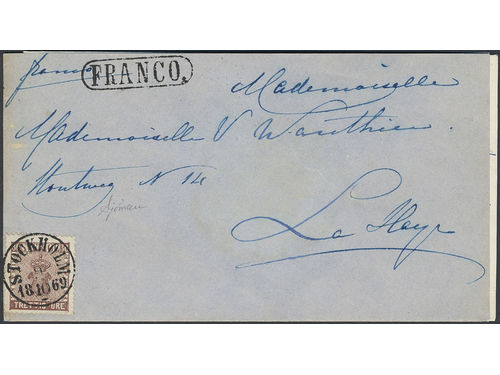 franco
FRANCO.
Mademoiselle
Mademoiselle V Wauthier.
Houtweg N 14
Sjöman
La Haye
STOCKHOLM
18 10 69
TRETTIO ÖRE